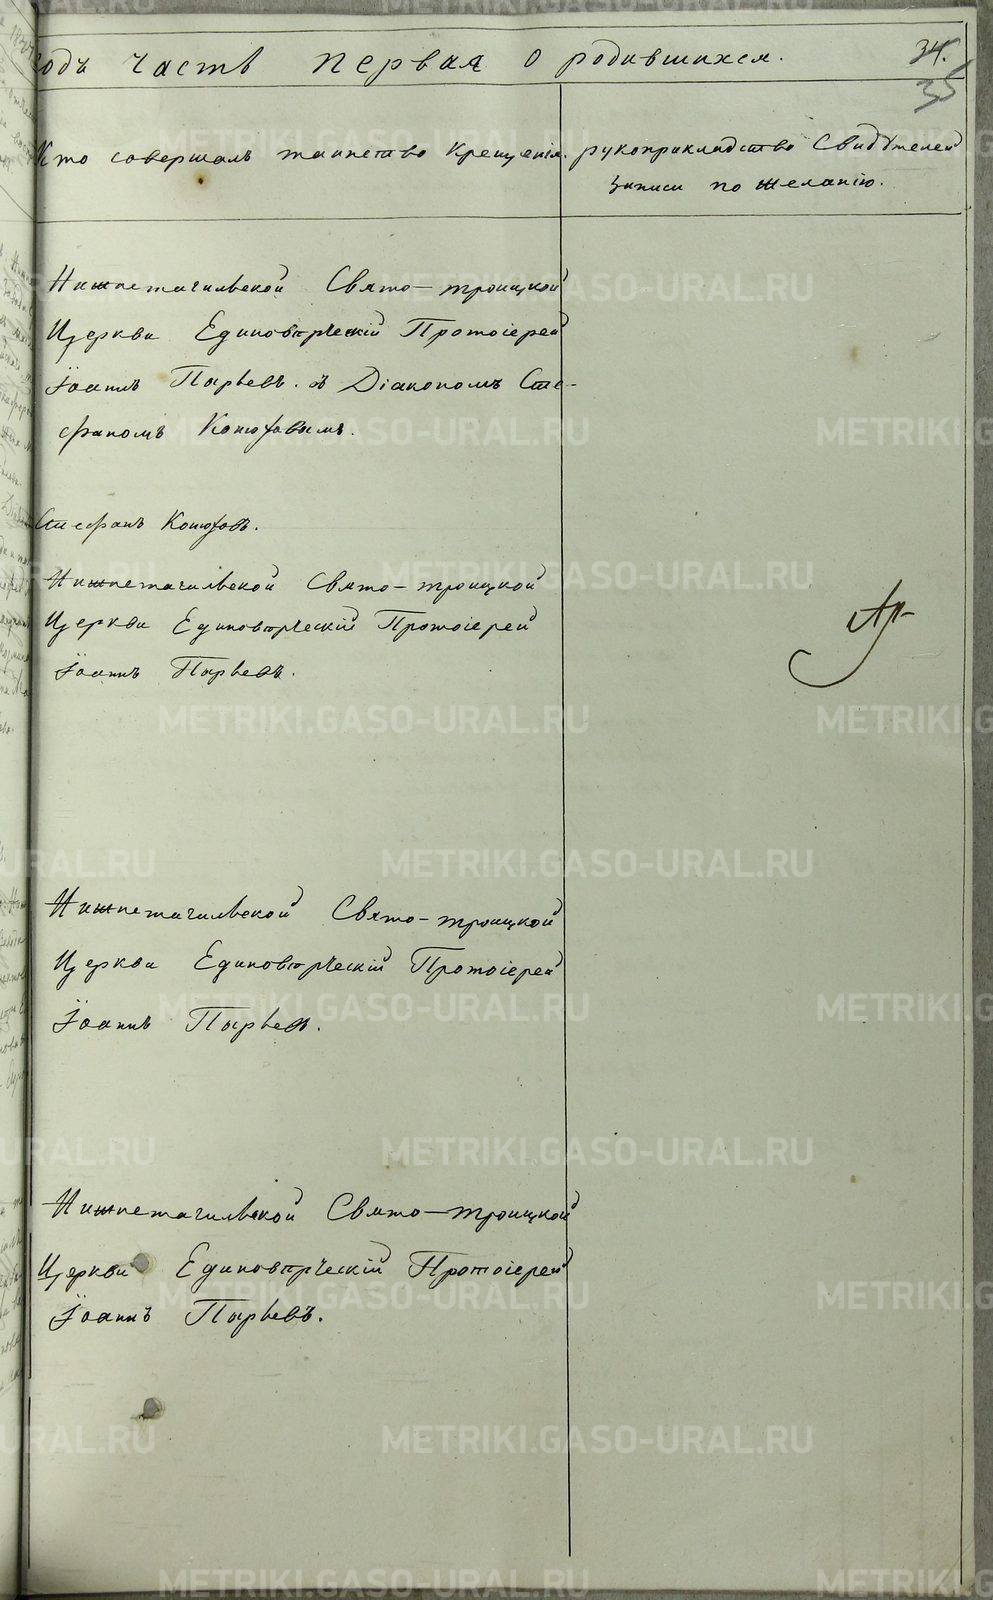 годъ часть первая о родившихся. 34.
35
Кто совершалъ таинство крещенія. рукоприкладство Свидѣтелей
записи по желанію.
Нижнетагильской Свято-троицкой
Церкви Единовѣрческій Протоіерей
Іоаннъ Пырьевъ. съ Діакономъ Сте-
фаномъ Конюховымъ.
Стефанъ Конюховъ.
Нижнетагильской Свято-троицкой
Церкви Единовѣрческій Протоіерей
Іоаннъ Пырьевъ.
Нижнетагильской Свято-троицкой
Церкви Единовѣрческій Протоіерей
Іоаннъ Пырьевъ.
Нижнетагильской Свято-троицкой
Церкви Единовѣрческій Протоіерей
Іоаннъ Пырьевъ.
METRIKI.GASO-URAL.RU